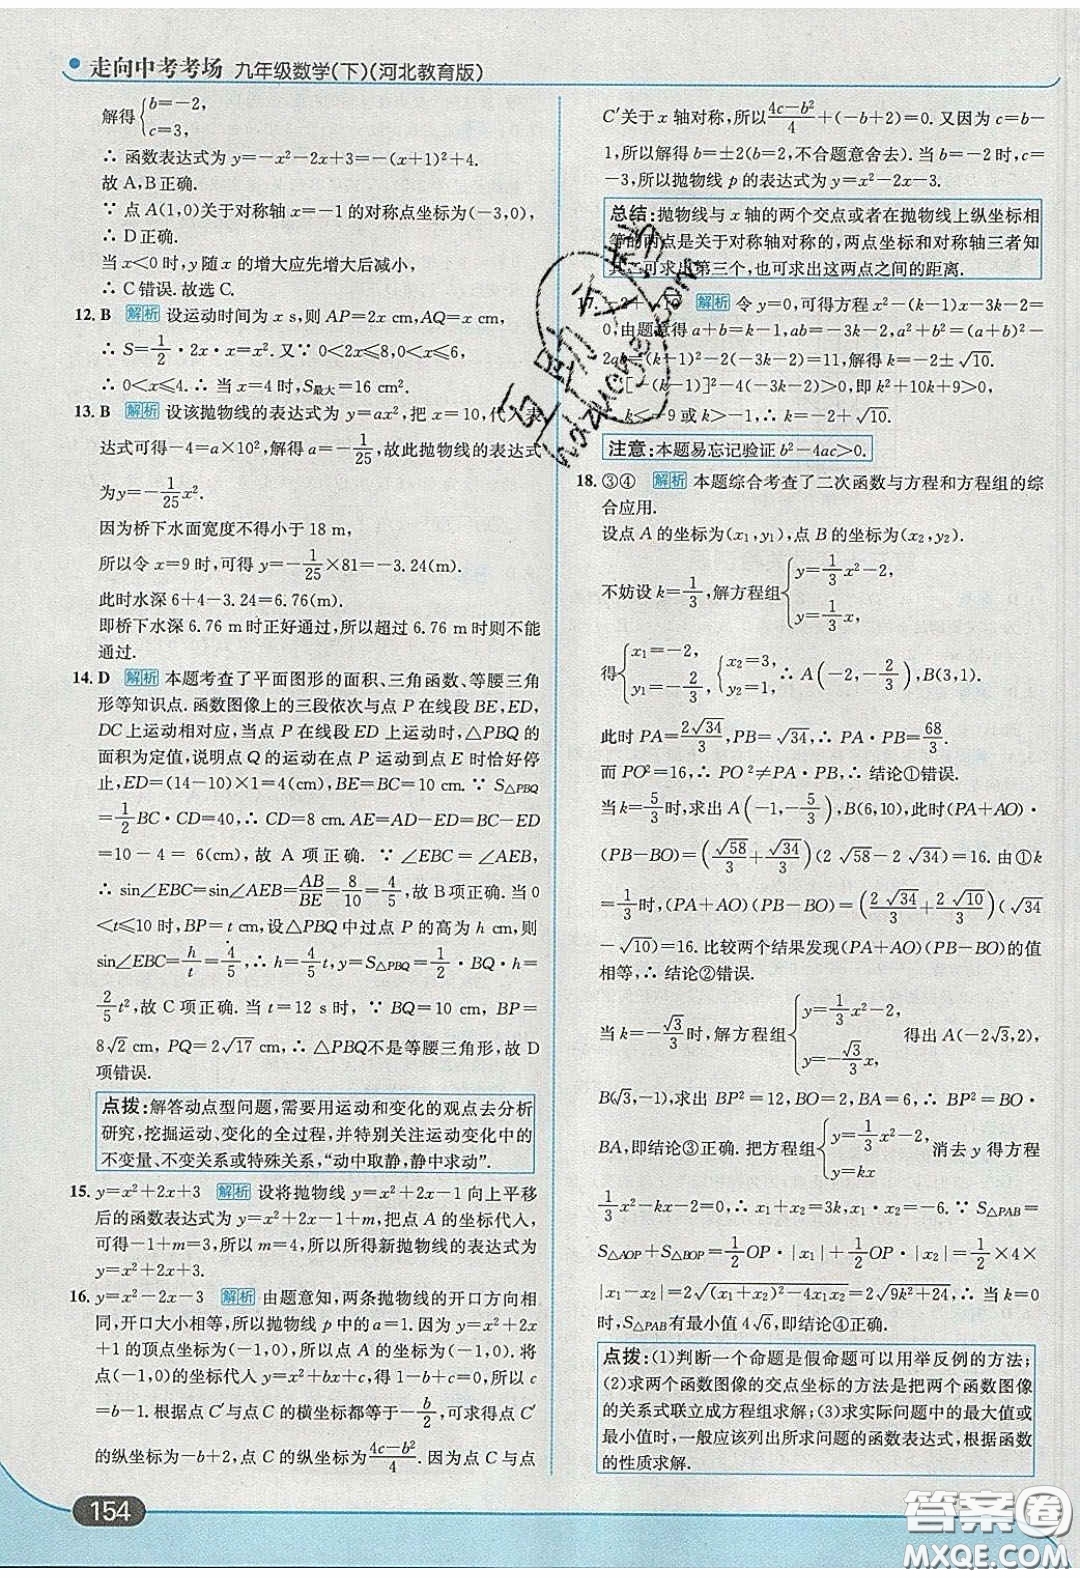 走向中考考场 九年级数学(下)(河北教育版)
解得{b=-2,
c=3,
∴ 函数表达式为 y=-x²-2x+3=-(x+1)²+4.
故 A,B正确.
∵ 点 A(1,0)关于对称轴 x=-1 的对称点坐标为(-3,0),
∴ D正确.
当 x<0 时,y 随 x 的增大应先增大后减小,
∴ C错误.故选C.
12. B 解析 设运动时间为 x s,则 AP=2x cm,AQ=x cm,
∴ S=1/2·2x·x=x².又∵ 0<2x≤8,0<x≤6,
∴ 0<x≤4.∴ 当 x=4 时,S最大=16 cm².
13. B 解析 设该抛物线的表达式为 y=ax²,把 x=10,代入表
达式可得-4=a×10²,解得 a=-1/25,故此抛物线的表达式
为y=-1/25x².
因为桥下水面宽度不得小于 18 m,
所以令 x=9 时,可得 y=-1/25×81=-3.24(m).
此时水深 6+4-3.24=6.76(m).
即桥下水深 6.76 m时正好通过,所以超过 6.76 m时则不能
通过.
14. D 解析 本题考查了平面图形的面积、三角函数、等腰三角
形等知识点.函数图像上的三段依次与点 P 在线段 BE,ED,
DC上运动相对应,当点 P 在线段 ED 上运动时,△PBQ的
面积为定值,说明点 Q 的运动在点 P 运动到点 E 时恰好停
止,ED=(14-10)×1=4(cm),BE=BC=10 cm.∵ S△PBQ
=1/2BC·CD=40,∴ CD=8 cm.AE=AD-ED=BC-ED
=10-4= 6(cm),故 A 项正确.∵ ∠EBC=∠AEB,
∴ sin∠EBC=sin∠AEB=AB/BE=8/10=4/5,故 B项正确.当 0
<t≤10 时,BP=t cm,设△PBQ 中过点 P 的高为 h cm,则
sin∠EBC=h/t=4/5,∴ h=4/5t,y=S△PBQ=1/2·BQ·h=
2/5t²,故 C 项正确.当 t=12 s 时, ∵ BQ=10 cm, BP=
8√2 cm, PQ=2√17 cm,∴ △PBQ不是等腰三角形,故 D
项错误.
点拨:解答动点型问题,需要用运动和变化的观点去分析
研究,挖掘运动、变化的全过程,并特别关注运动变化中的
不变量、不变关系或特殊关系,“动中取静,静中求动”.
15. y=x²+2x+3 解析 设将抛物线 y=x²+2x-1 向上平移
后的函数表达式为 y=x²+2x-1+m,把点 A 的坐标代入,
可得-1+m=3,所以 m=4,所以所得新抛物线的表达式为
y=x²+2x+3.
16. y=x²-2x-3 解析 由题意知,两条抛物线的开口方向相
同,开口大小相等,所以抛物线 p 中的 a=1.因为 y=x²+2x
+1 的顶点坐标为(-1,0),所以点 A 的坐标为(-1,0).将
点(-1,0)的坐标代入 y=x²+bx+c,得 1-b+c=0,所以 c
=b-1.根据点 C′与点 C 的横坐标都等于-b/2,可求得点 C′
的纵坐标为-b+2,点 C 的纵坐标为(4c-b²)/4.因为点 C 与点
C′关于 x 轴对称,所以(4c-b²)/4+(-b+2)=0.又因为 c=b-
1,所以解得 b=±2(b=2,不合题意舍去).当 b=-2 时,c=
-3,所以抛物线 p 的表达式为 y=x²-2x-3.
总结:抛物线与 x 轴的两个交点或者在抛物线上纵坐标相
等的两点是关于对称轴对称的,两点坐标和对称轴三者知
其二可求出第三个,也可求出这两点之间的距离.
17. -2+√10 解析 令 y=0,可得方程 x²-(k-1)x-3k-2=
0,由题意得 a+b=k-1,ab=-3k-2,a²+b²=(a+b)²-
2ab=(k-1)²-2(-3k-2)=11,解得 k=-2±√10.
[-(k-1)]²-4(-3k-2)>0,即 k²+10k+9>0,
k<-9 或 k>-1,∴ k=-2+√10.
注意:本题易忘记验证 b²-4ac>0.
18. ③④ 解析 本题综合考查了二次函数与方程和方程组的综
合应用.
设点 A 的坐标为(x₁,y₁),点 B 的坐标为(x₂,y₂).
不妨设 k=1/3,解方程组{y=1/3x²-2,
y=1/3x,
得{x₁=-2, {x₂=3,
y₁=-2/3, y₂=1, ∴ A(-2,-2/3),B(3,1).
此时 PA=2√34/3,PB=√34,∴ PA·PB=68/3.
而 PO²=16,∴ PO²≠PA·PB,∴ 结论①错误.
当 k=5/3时,求出 A(-1,-5/3),B(6,10),此时(PA+AO)·
(PB-BO)=(√58/3+√34/3)(2√58-2√34)=16.由①k
=1/3时,(PA+AO)(PB-BO)=(2√34/3+2√10/3)(√34
-√10)=16.比较两个结果发现(PA+AO)(PB-BO)的值
相等,∴ 结论②错误.
当 k=-√3/3时,解方程组{y=1/3x²-2,
y=-√3/3x, 得出 A(-2√3,2),
B(√3,-1),求出 BP²=12,BO=2,BA=6,∴ BP²=BO·
BA,即结论③正确.把方程组{y=1/3x²-2,
y=kx 消去 y 得方程
1/3x²-kx-2=0,∴ x₁+x₂=3k,x₁x₂=-6.∵ S△PAB=
S△AOP+S△BOP=1/2OP·|x₁|+1/2OP·|x₂|=1/2×4×
|x₁-x₂|=2√((x₁+x₂)²-4x₁x₂)=2√(9k²+24),∴ 当 k=0
时,S△PAB有最小值 4√6,即结论④正确.
点拨:(1)判断一个命题是假命题可以用举反例的方法;
(2)求两个函数图像的交点坐标的方法是把两个函数图像
的关系式联立成方程组求解;(3)求实际问题中的最大值或
最小值时,一般应该列出所求问题的函数表达式,根据函数
的性质求解.
154
答案圈
MXQE.COM